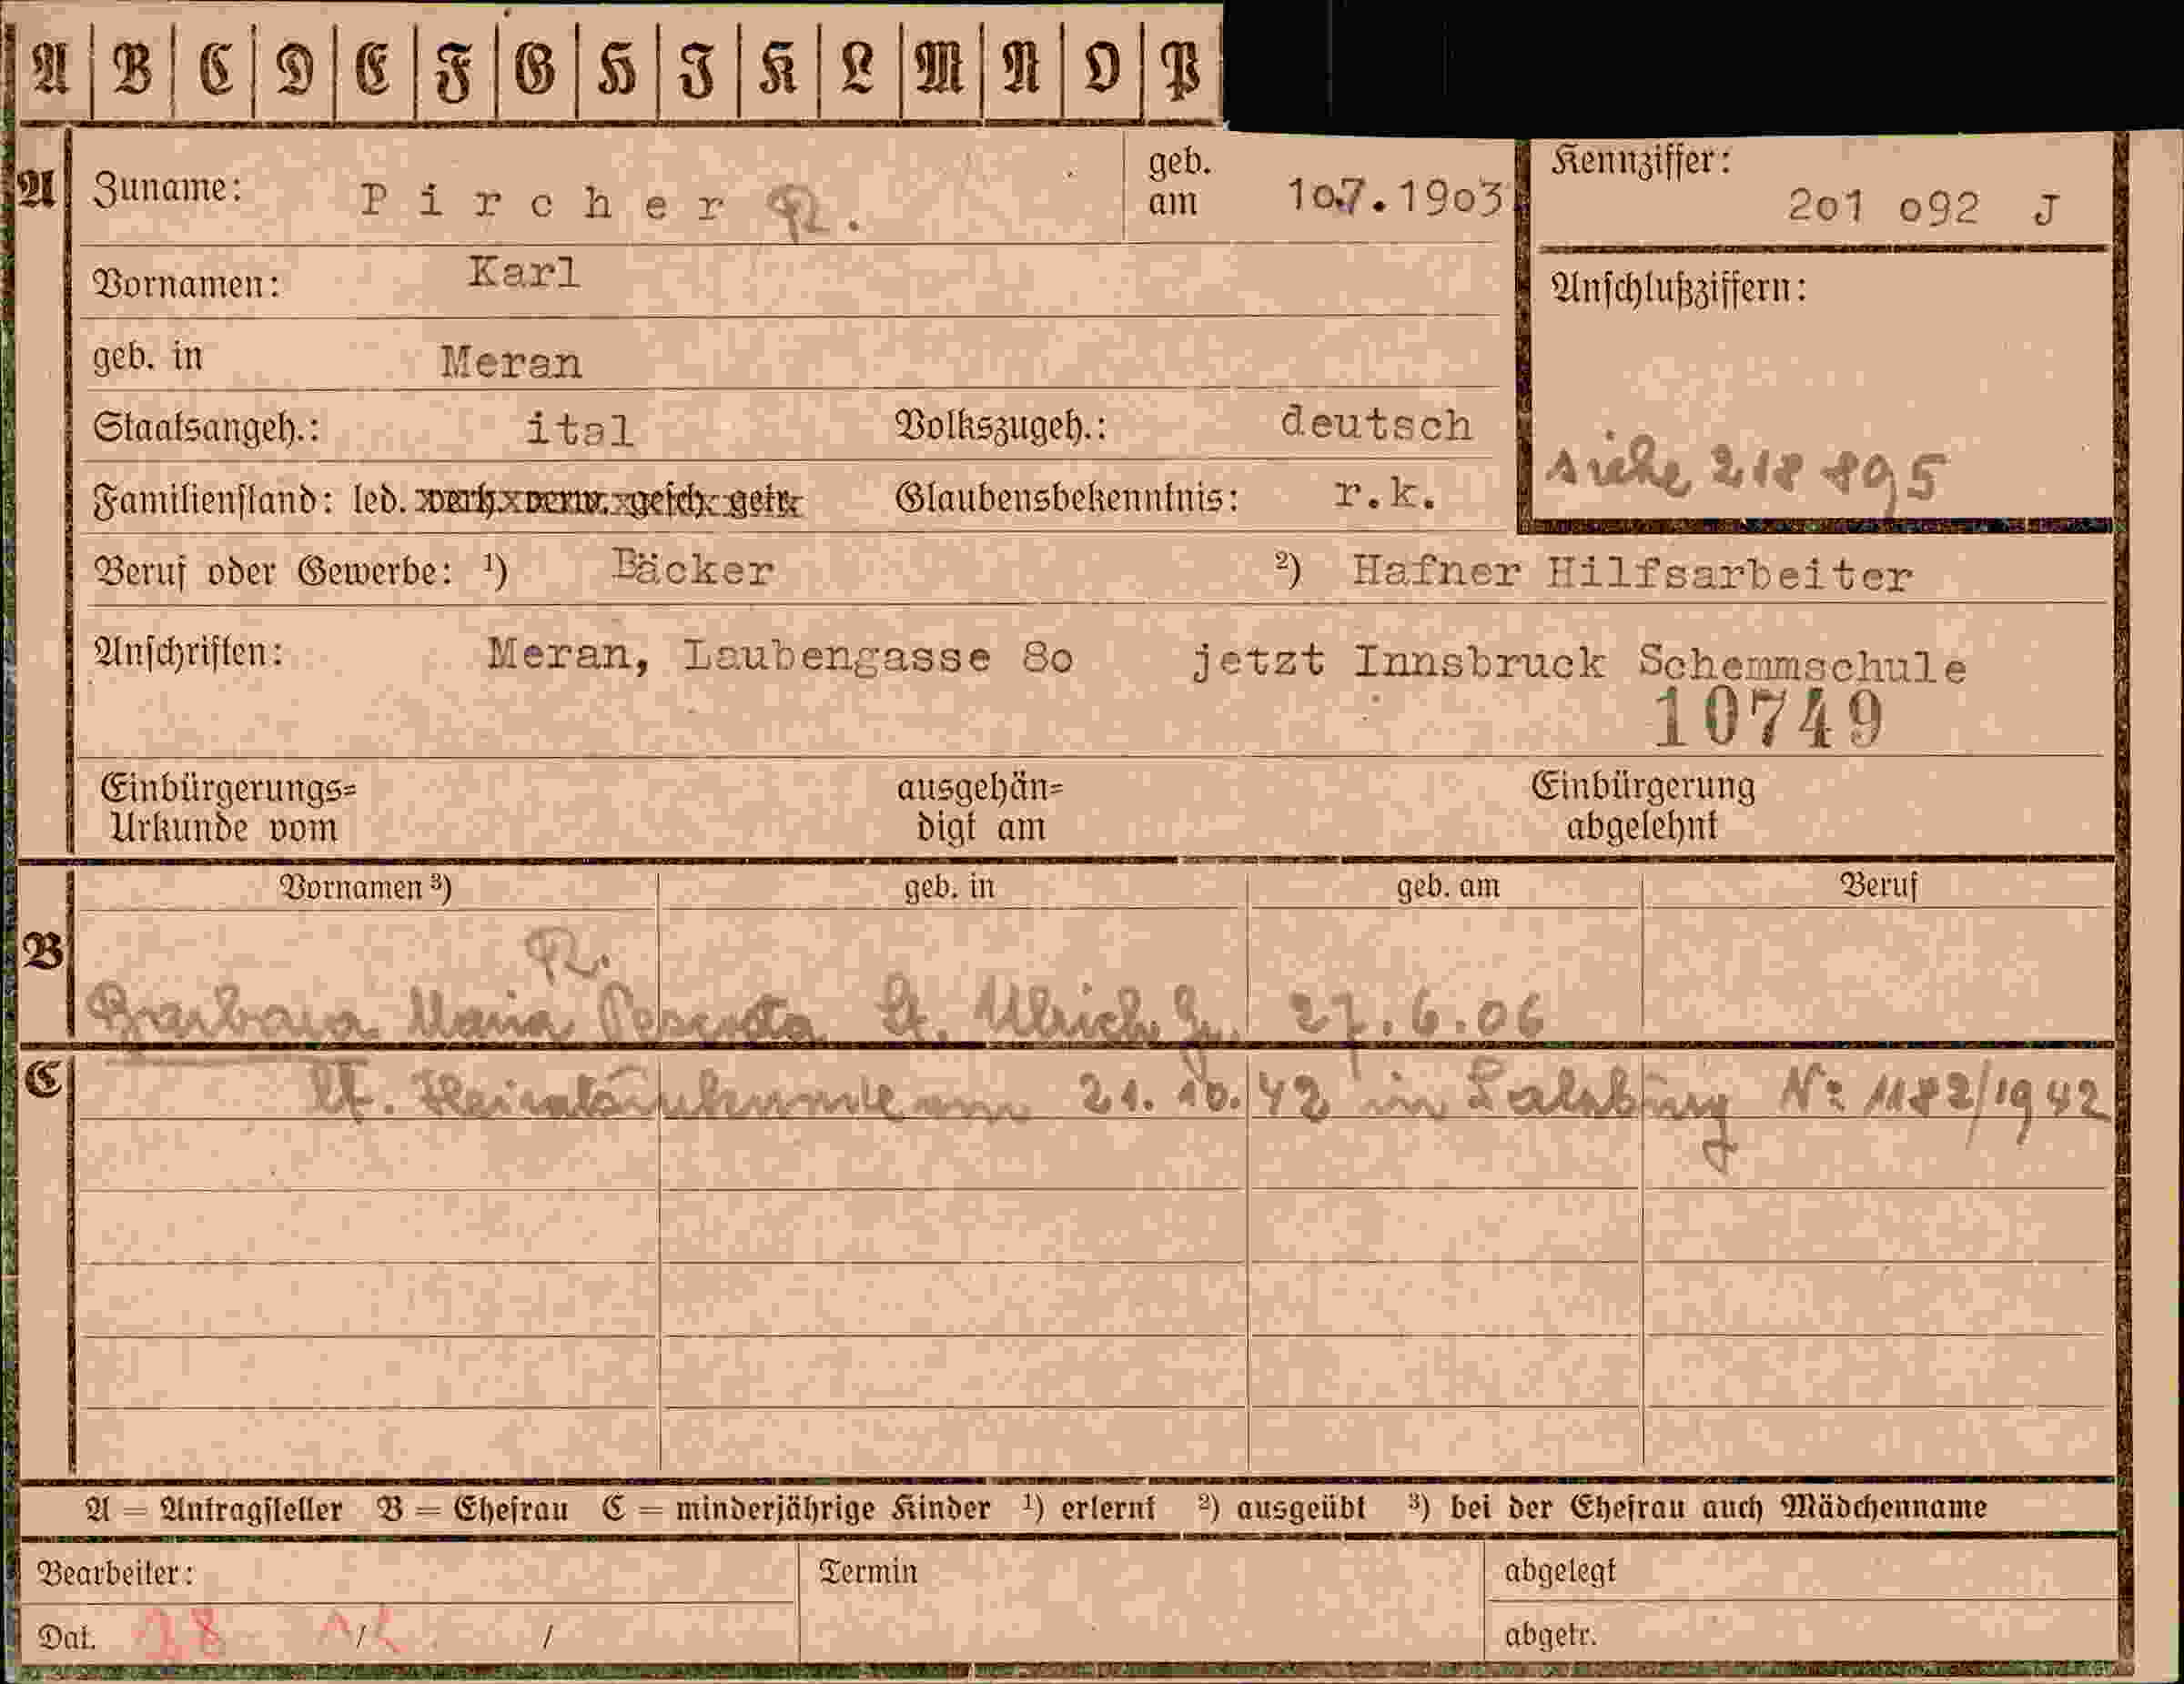 A B C D E F G H I K L M N O P
A Zuname: Pircher R. geb. am 10.7.1903 Kennziffer: 201 092 J
Vornamen: Karl
geb. in Meran Anschlußziffern:
Staatsangeh.: ital Volkszugeh.: deutsch
siehe 218 895
Familienstand: led. verh. verw. gesch. getr. Glaubensbekenntnis: r.k.
Beruf oder Gewerbe: ¹) Bäcker ²) Hafner Hilfsarbeiter
Anschriften: Meran, Laubengasse 80 jetzt Innsbruck Schemmschule
10749
Einbürgerungs= ausgehän= Einbürgerung
Urkunde vom digt am abgelehnt
Vornamen ³) geb. in geb. am Beruf
B R.
Barbara Maria St. Ulrich Gr. 27.6.06
C lt. Heiratsurkunde am 21.10.42 in Salzburg Nr 1182/1942
A = Antragsteller B = Ehefrau C = minderjährige Kinder ¹) erlernt ²) ausgeübt ³) bei der Ehefrau auch Mädchenname
Bearbeiter: Termin abgelegt
Dat. 28 / / abgetr.